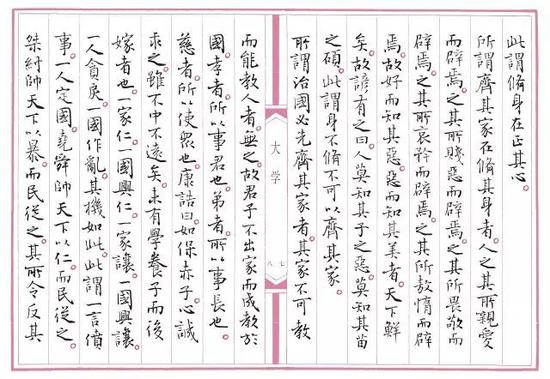 此謂脩身在正其心。
所謂齊其家在脩其身者。人之其所親愛
而辟焉。之其所賤惡而辟焉。之其所畏敬而
辟焉。之其所哀矜而辟焉。之其所敖惰而辟
焉。故好而知其惡。惡而知其美者。天下鮮
矣。故諺有之曰。人莫知其子之惡。莫知其苗
之碩。此謂身不脩不可以齊其家。
所謂治國必先齊其家者。其家不可教
大学
八七
而能教人者無之。故君子不出家而成教於
國。孝者所以事君也。弟者所以事長也。
慈者所以使眾也。康誥曰如保赤子。心誠
求之。雖不中不遠矣。未有學養子而後
嫁者也。一家仁一國興仁。一家讓一國興讓。
一人貪戾一國作亂。其機如此。此謂一言僨
事。一人定國。堯舜帥天下以仁而民從之。
桀紂帥天下以暴而民從之。其所令反其